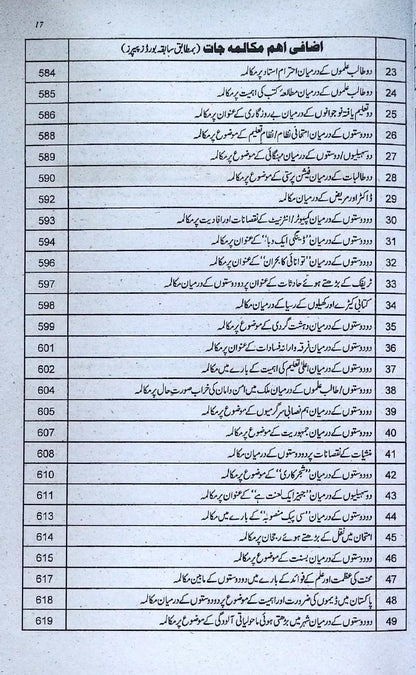 17
اضافی اہم مکالمہ جات (بمطابق سابقہ بورڈ پیپرز)
23 دو طالب علموں کے درمیان احترام استاد پر مکالمہ 584
24 دو طالب علموں کے درمیان مطالعۂ کتب کی اہمیت پر مکالمہ 585
25 دو تعلیم یافتہ نوجوانوں کے درمیان بے روزگاری کے عنوان پر مکالمہ 586
26 دو دوستوں کے درمیان امتحانی نظام/ نظام تعلیم کے موضوع پر مکالمہ 588
27 دو سہیلیوں/ دوستوں کے درمیان مہنگائی کے موضوع پر مکالمہ 589
28 دو طالبات کے درمیان فیشن پرستی کے موضوع پر مکالمہ 590
29 ڈاکٹر اور مریض کے درمیان مکالمہ 592
30 دو دوستوں کے درمیان کمپیوٹر/ انٹرنیٹ کے نقصانات اور افادیت پر مکالمہ 593
31 دو دوستوں کے درمیان "ڈینگی ایک وبا" کے عنوان پر مکالمہ 594
32 دو دوستوں کے درمیان "توانائی کا بحران" کے عنوان پر مکالمہ 596
33 ٹریفک کے بڑھتے ہوئے حادثات کے عنوان پر دو دوستوں کے درمیان مکالمہ 597
34 کتابی کیڑے اور کھیلوں کے رسیا کے درمیان مکالمہ 598
35 دو دوستوں کے درمیان دہشت گردی کے موضوع پر مکالمہ 599
36 دو دوستوں کے درمیان فرقہ وارانہ فسادات کے عنوان پر مکالمہ 601
37 دو دوستوں کے درمیان اعلیٰ تعلیم کی اہمیت کے بارے میں مکالمہ 602
38 دو دوستوں/ طالب علموں کے درمیان ملک میں امن و امان کی خراب صورتِ حال پر مکالمہ 604
39 دو دوستوں کے درمیان ہم نصابی سرگرمیوں کے موضوع پر مکالمہ 605
40 دو دوستوں کے درمیان جمہوریت کے موضوع پر مکالمہ 607
41 منشیات کے نقصانات پر دو دوستوں کے درمیان مکالمہ 608
42 دو دوستوں کے درمیان "شجر کاری" کے موضوع پر مکالمہ 610
43 دو سہیلیوں کے درمیان "جہیز ایک لعنت ہے" کے عنوان پر مکالمہ 611
44 دو دوستوں کے درمیان "سی پیک منصوبہ" کے بارے میں مکالمہ 613
45 امتحان میں نقل کے بڑھتے ہوئے رجحان پر مکالمہ 614
46 دو دوستوں کے درمیان بسنت کے موضوع پر مکالمہ 615
47 محنت کی عظمت اور علم کے فوائد کے بارے میں دو دوستوں کے مابین مکالمہ 617
48 پاکستان میں ڈیموں کی ضرورت اور اہمیت کے موضوع پر دو دوستوں کے درمیان مکالمہ 618
49 دو دوستوں کے درمیان شہر میں بڑھتی ہوئی ماحولیاتی آلودگی کے موضوع پر مکالمہ 619